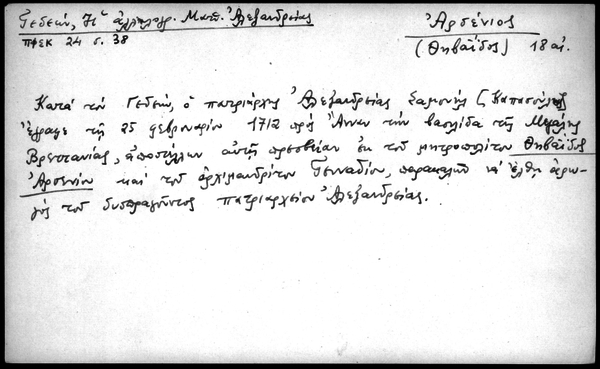 Γεδεών, Ἡ ἀλληλογρ. Ματθ. Ἀλεξανδρείας
ΠΦΕΚ 24 σ. 38
Ἀρσένιος
(Θηβαΐδος) 18 αἰ.
Κατά τόν Γεδεών, ὁ πατριάρχης Ἀλεξανδρείας Σαμουήλ (Καπασούλης
ἔγραψε τῇ 25 φεβρουαρίου 1712 πρός Ἄνναν τήν βασίλιδα τῆς Μεγάλης
Βρεττανίας, ἀποστέλλων αὐτῇ πρεσβείαν ἐκ τοῦ μητροπολίτου Θηβαΐδος
Ἀρσενίου καί τοῦ ἀρχιμανδρίτου Γενναδίου, παρακαλῶν νά ἔλθῃ ἀρω-
γός τοῦ δυσπραγοῦντος πατριαρχείου Ἀλεξανδρείας.